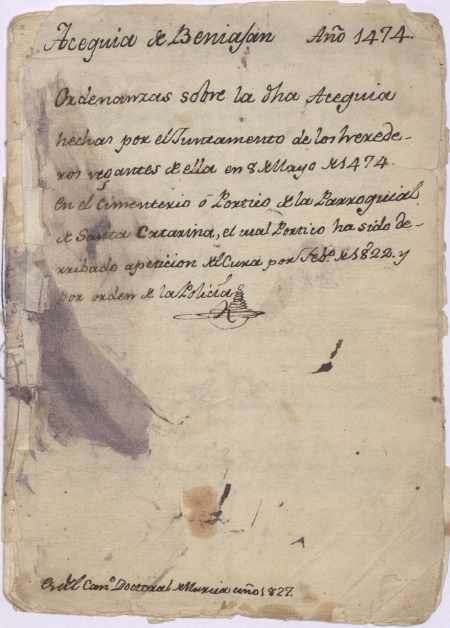 Acequia de Beniasan Año 1474.
Ordenanzas sobre la dha Acequia
hechas por el Juntamento de los herede-
ros regantes de ella en 8 de Mayo de 1474
en el Cimenterio ó Portico de la Parroquial
de Santa Catarina, el cual Portico ha sido de-
rribado a peticion del Cura por Febo. de 1822. y
por orden de la Policia
Es del Cano. Doctoral de Murcia año 1827.